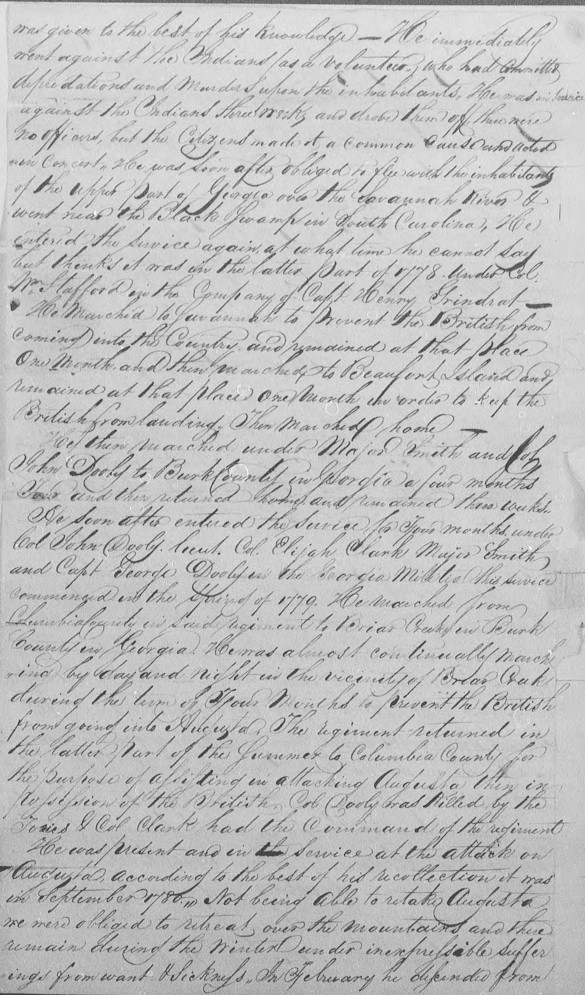 was given to the best of his knowledge — He immediately
went against the Indians (as a volunteer,) who had committed
depredations and Murders upon the inhabitants, He was in service
against the Indians three weeks and drove them off there were
no officers, but the Citizens made it a common cause and acted
in concert. He was soon after obliged to flee with the inhabitants
of the upper part of Georgia over the Savannah River &
went near the Black Swamp in South Carolina, He
entered the service again, at what time he cannot say
but thinks it was in the latter part of 1778 under Col.
Wm Stafford in the Company of Capt Henry Grindrat —
He Marched to Savannah to prevent the British from
coming into the Country, and remained at that place
One Month and then marched to Beaufort Island and
remained at that place One Month in order to keep the
British from landing. Then Marched home —
He then marched under Major Smith and Col
John Dooly to Burk County in Georgia a four months
Tour and then returned home and remained three weeks.
He soon after entered the service for four months, under
Col John Dooly. lieut. Col. Elijah Clark Major Smith
and Capt George Dooly in the Georgia Militia this service
commenced in the spring of 1779. He marched from
Columbia County in said regiment to Briar Creek in Burk
County in Georgia. He was almost continually march
-ing by day and night in the vicinity of Briar Creek
during the term of four Months to prevent the British
from going into Augusta, The regiment returned in
the latter part of the Summer to Columbia County for
the purpose of assisting in attacking Augusta then in
possission of the British, Col Dooly was killed by the
Tories & Col Clark had the Command of the regiment
He was present and in the service at the attack on
Augusta, according to the best of his recollection it was
in September 1780,, Not being able to retake Augusta
we were obliged to retreat over the mountains and there
remain during the Winter under inexpressible suffer
ings from want & sickness. In February he decended from